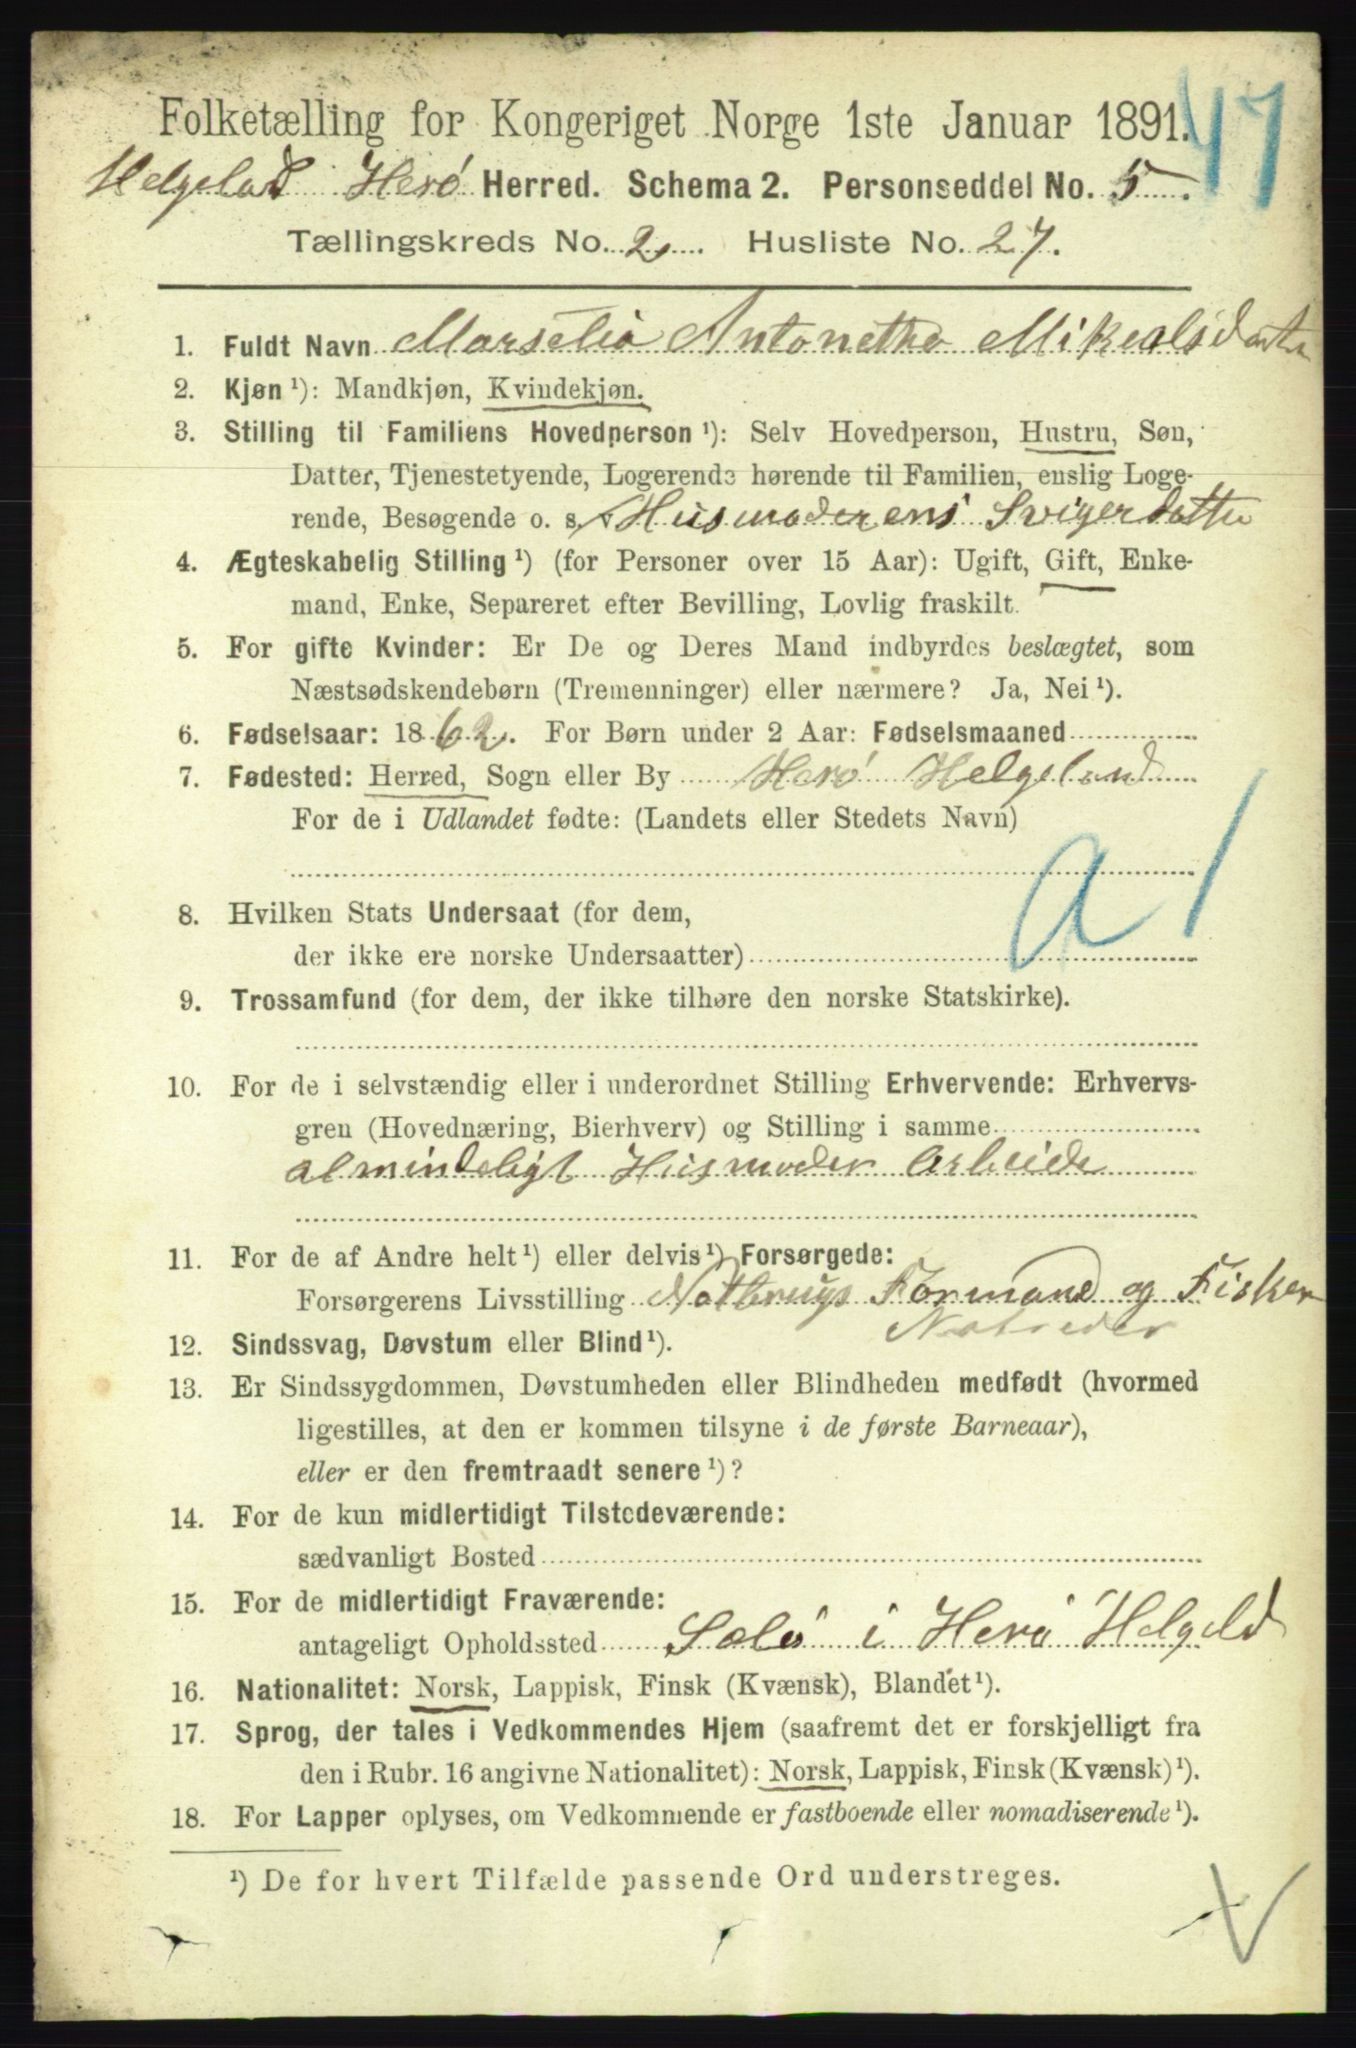 Folketælling for Kongeriget Norge 1ste Januar 1891.
47
Helgelad Herø Herred. Schema 2. Personseddel No. 5.
Tællingskreds No. 2. Husliste No. 27.
1. Fuldt Navn Marselia Antonetha Mikealsdatter
2. Kjøn ¹): Mandkjøn, Kvindekjøn.
3. Stilling til Familiens Hovedperson ¹): Selv Hovedperson, Hustru, Søn,
Datter, Tjenestetyende, Logerende hørende til Familien, enslig Loge-
rende, Besøgende o. s. v. Husmoderens Svigerdatter
4. Ægteskabelig Stilling ¹) (for Personer over 15 Aar): Ugift, Gift, Enke-
mand, Enke, Separeret efter Bevilling, Lovlig fraskilt.
5. For gifte Kvinder: Er De og Deres Mand indbyrdes beslægtet, som
Næstsødskendebørn (Tremenninger) eller nærmere? Ja, Nei ¹).
6. Fødselsaar: 1862. For Børn under 2 Aar: Fødselsmaaned
7. Fødested: Herred, Sogn eller By Herø Helgeland
For de i Udlandet fødte: (Landets eller Stedets Navn)
a 1
8. Hvilken Stats Undersaat (for dem,
der ikke ere norske Undersaatter)
9. Trossamfund (for dem, der ikke tilhøre den norske Statskirke).
10. For de i selvstændig eller i underordnet Stilling Erhvervende: Erhvervs-
gren (Hovednæring, Bierhverv) og Stilling i samme
almindeligt Husmoder Arbeide
11. For de af Andre helt ¹) eller delvis ¹) Forsørgede:
Forsørgerens Livsstilling Notbrugs Formand og Fisker
Notreder
12. Sindssvag, Døvstum eller Blind ¹).
13. Er Sindssygdommen, Døvstumheden eller Blindheden medfødt (hvormed
ligestilles, at den er kommen tilsyne i de første Barneaar),
eller er den fremtraadt senere ¹)?
14. For de kun midlertidigt Tilstedeværende:
sædvanligt Bosted
15. For de midlertidigt Fraværende:
antageligt Opholdssted Sælø i Herø Helgeld
16. Nationalitet: Norsk, Lappisk, Finsk (Kvænsk), Blandet ¹).
17. Sprog, der tales i Vedkommendes Hjem (saafremt det er forskjelligt fra
den i Rubr. 16 angivne Nationalitet): Norsk, Lappisk, Finsk (Kvænsk) ¹).
18. For Lapper oplyses, om Vedkommende er fastboende eller nomadiserende ¹).
¹) De for hvert Tilfælde passende Ord understreges.